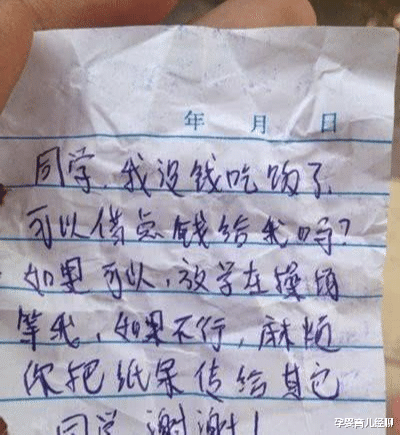 年 月 日
同学,我没钱吃饭了,
可以借点钱给我吗?
如果可以,放学在操场
等我,如果不行,麻烦
你把纸条传给其它
同学,谢谢!
孕哭育儿经聊